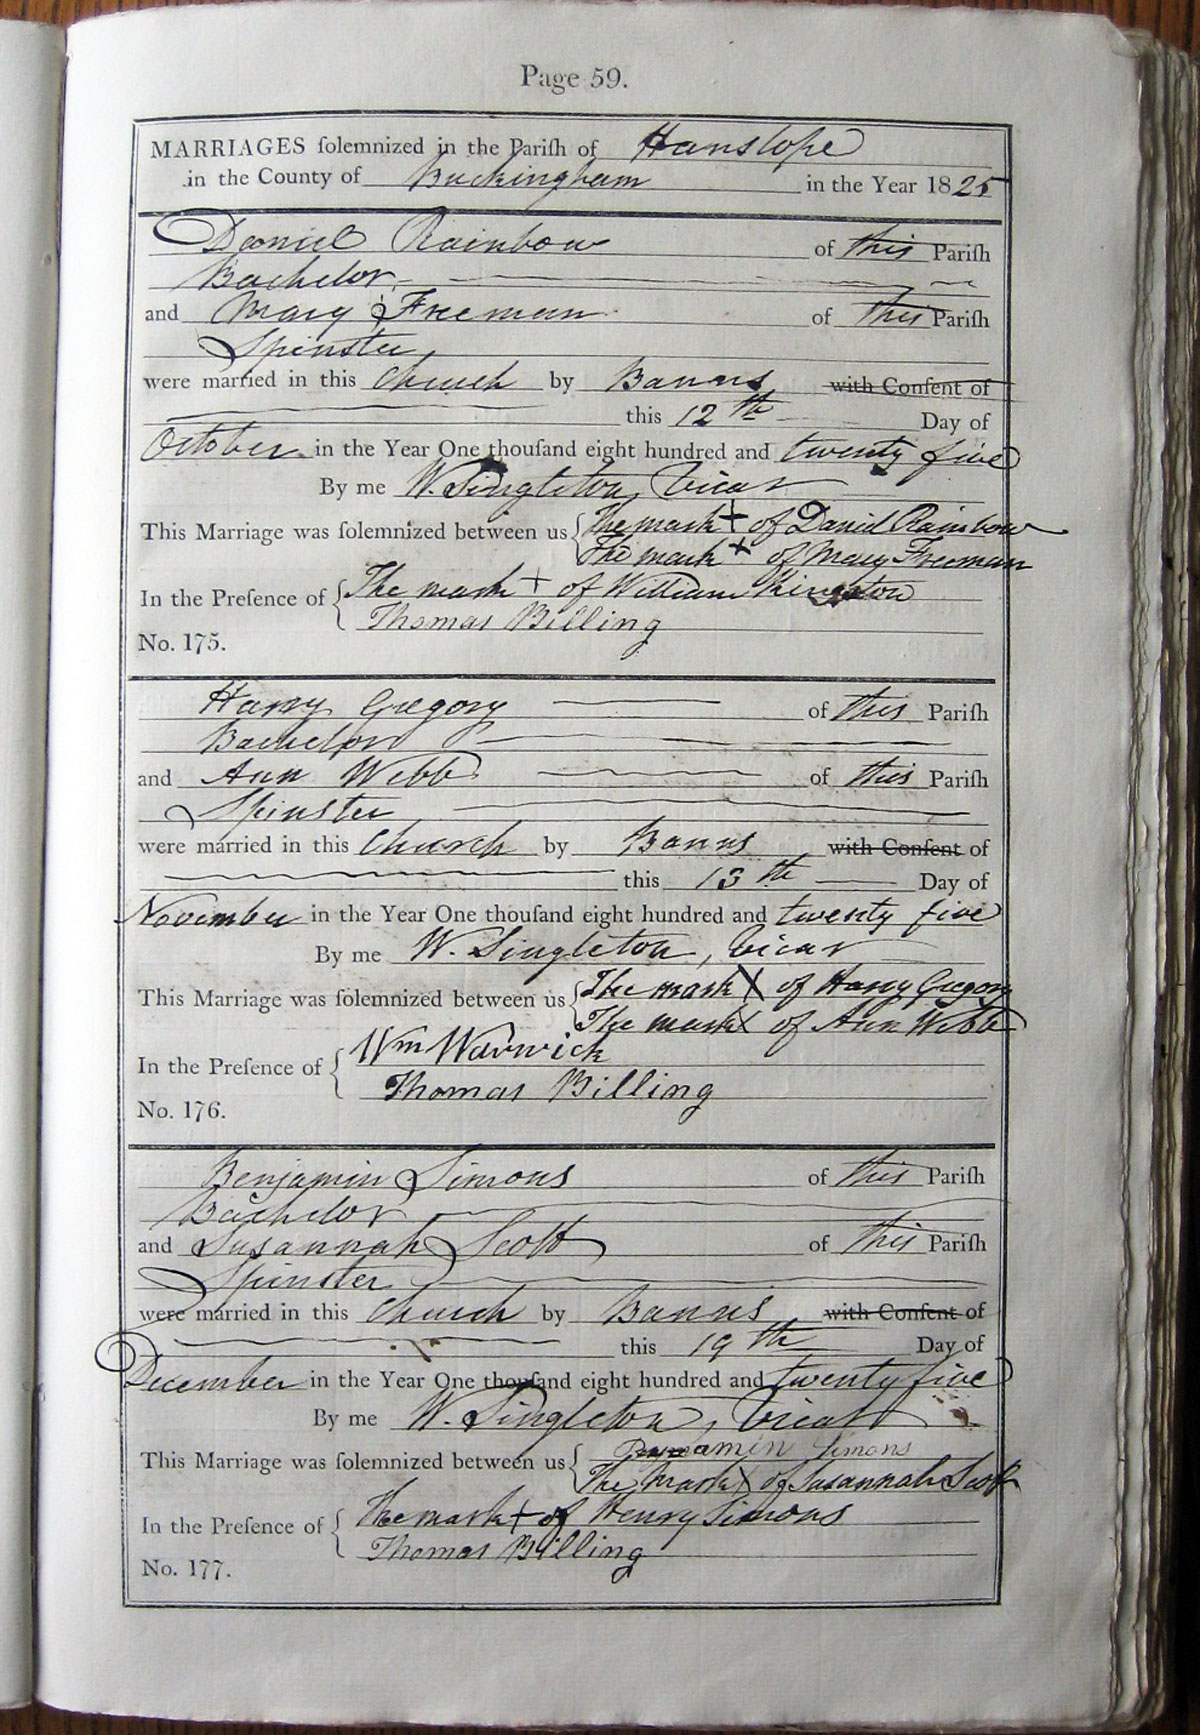 Page 59.
MARRIAGES ſolemnized in the Pariſh of Hanslope
in the County of Buckingham in the Year 1825
Daniel Rainbow of this Pariſh
Bachelor
and Mary Freeman of this Pariſh
Spinster
were married in this Church by Banns with Conſent of
this 12th Day of
October in the Year One thouſand eight hundred and twenty five
By me W. Singleton, Vicar
This Marriage was ſolemnized between us { The mark + of Daniel Rainbow
The mark x of Mary Freeman
In the Preſence of { The mark + of William Kingston
Thomas Billing
No. 175.
Harry Gregory of this Pariſh
Bachelor
and Ann Webb of this Pariſh
Spinster
were married in this Church by Banns with Conſent of
this 13th Day of
November in the Year One thouſand eight hundred and twenty five
By me W. Singleton, Vicar
This Marriage was ſolemnized between us { The mark X of Harry Gregory
The mark X of Ann Webb
In the Preſence of { Wm Warwick
Thomas Billing
No. 176.
Benjamin Simons of this Pariſh
Bachelor
and Susannah Scott of this Pariſh
Spinster
were married in this Church by Banns with Conſent of
this 19th Day of
December in the Year One thouſand eight hundred and twenty five
By me W. Singleton, Vicar
This Marriage was ſolemnized between us { Benjamin Simons
The Mark X of Susannah Scott
In the Preſence of { The mark + of Henry Simons
Thomas Billing
No. 177.